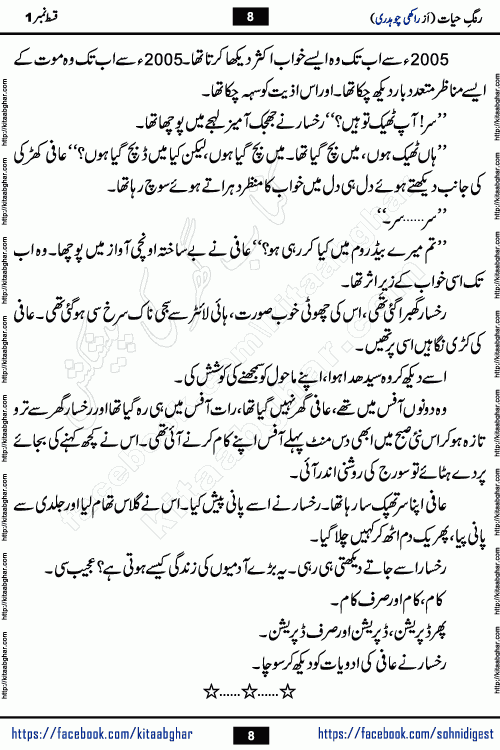 رنگِ حیات (از راکھی چوہدری) 8 قسط نمبر 1
2005ء سے اب تک وہ ایسے خواب اکثر دیکھا کرتا تھا۔ 2005ء سے اب تک وہ موت کے
ایسے مناظر متعدد بار دیکھ چکا تھا۔ اور اس اذیت کو سہہ چکا تھا۔
’’سر! آپ ٹھیک تو ہیں؟‘‘ رخسار نے جھجک آمیز لہجے میں پوچھا تھا۔
’’ہاں ٹھیک ہوں، میں بچ گیا تھا۔ میں بچ گیا ہوں، لیکن کیا میں ڈ بچ گیا ہوں؟‘‘ عافی کھڑکی
کی جانب دیکھتے ہوئے دل ہی دل میں خواب کا منظر دہراتے ہوئے سوچ رہا تھا۔
’’سر......سر۔‘‘
’’تم میرے بیڈ روم میں کیا کر رہی ہو؟‘‘ عافی نے بے ساختہ اونچی آواز میں پوچھا۔ وہ اب
تک اسی خواب کے زیر اثر تھا۔
رخسار گھبرا گئی تھی، اس کی چھوٹی خوب صورت، ہائی لائٹر سے سجی ناک سرخ سی ہو گئی تھی۔ عافی
کی کڑی نگاہیں اسی پر تھیں۔
اسے دیکھ کر وہ سیدھا ہوا، اپنے ماحول کو سمجھنے کی کوشش کی۔
وہ دونوں آفس میں تھے، عافی گھر نہیں گیا تھا، رات آفس میں ہی رہ گیا تھا اور رخسار گھر سے تر و
تازہ ہو کر اس نئی صبح میں ابھی دس منٹ پہلے آفس اپنے کام کرنے آئی تھی۔ اس نے کچھ کہنے کی بجائے
پردے ہٹائے تو سورج کی روشنی اندر آئی۔
عافی اپنا سر تھپک سا رہا تھا۔ رخسار نے اسے پانی پیش کیا۔ اس نے گلاس تھام لیا اور جلدی سے
پانی پیا، پھر یک دم اٹھ کر کہیں چلا گیا۔
رخسار اسے جاتے دیکھتی ہی رہی۔ یہ بڑے آدمیوں کی زندگی کیسے ہوتی ہے؟ عجیب سی۔
کام، کام اور صرف کام۔
پھر ڈپریشن، ڈپریشن اور صرف ڈپریشن۔
رخسار نے عافی کی ادویات کو دیکھ کر سوچا۔
☆......☆......☆
https://facebook.com/kitaabghar 8 https://facebook.com/sohnidigest
http://kitaabghar.com
kitaabghar.com